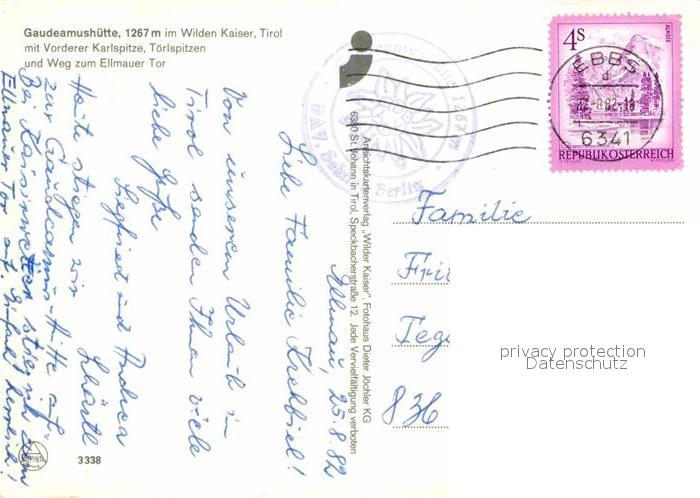 Gaudeamushütte, 1267 m im Wilden Kaiser, Tirol
mit Vorderer Karlspitze, Törlspitzen
und Weg zum Ellmauer Tor
Ellmau, 25.8.82
Liebe Familie Krehbiel!
Von unserem Urlaub in
Tirol senden Ihnen viele
liebe Grüße
Siegfried und Andrea
Heute stiegen wir
zur Gaudeamus-Hütte auf.
Bei Kaiserwetter stieg ich zum
Ellmauer Tor auf. Einfach herrlich!
3338
Ansichtskartenverlag "Wilder Kaiser", Fotohaus Dieter Jöchler KG
6380 St. Johann in Tirol, Speckbacherstraße 12. Jede Vervielfältigung verboten
1267 m
DAV. Sekt. Berlin
4S
REPUBLIK ÖSTERREICH
EBBS
d
-8.82-18
6341
Familie
Fri
Tege
836
privacy protection
Datenschutz